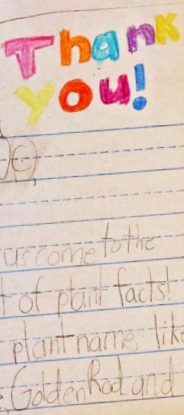 Thank
you!
us come to the
of plant facts!
plant names like
Golden Rod and